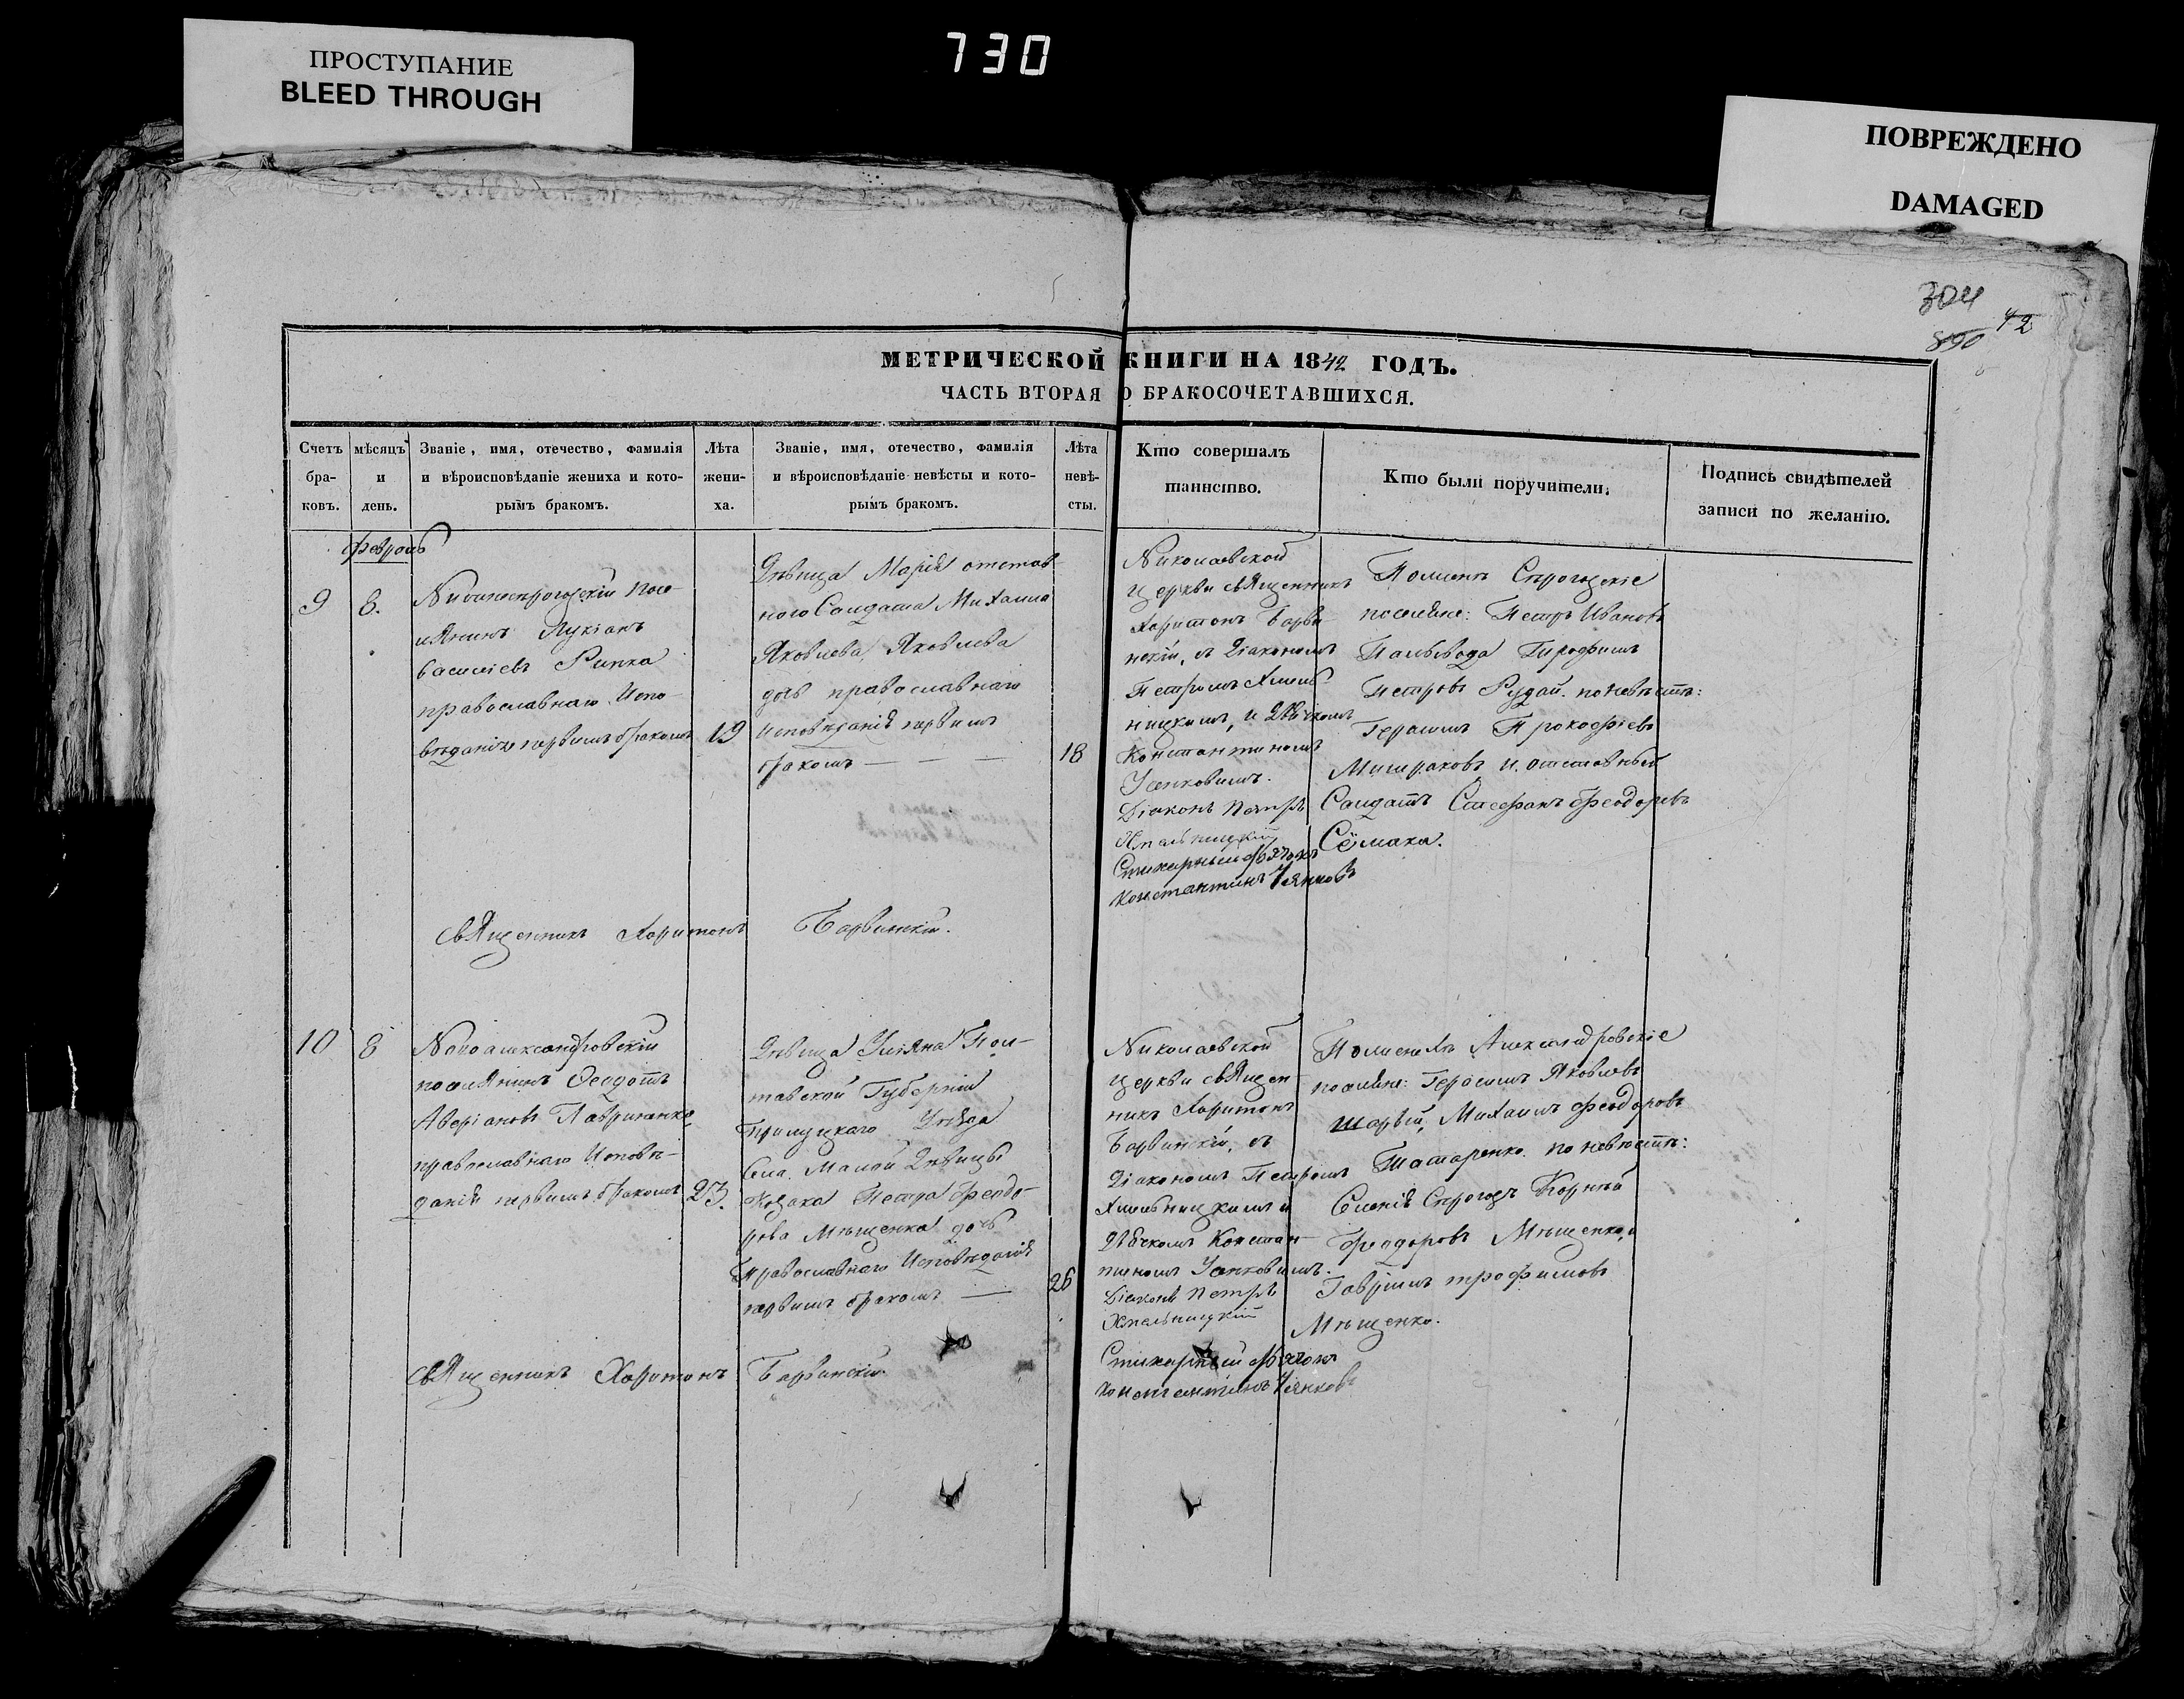 ПРОСТУПАНИЕ
BLEED THROUGH
730
ПОВРЕЖДЕНО
DAMAGED
304
890
42
МЕТРИЧЕСКОЙ КНИГИ НА 1842 ГОДЪ.
ЧАСТЬ ВТОРАЯ О БРАКОСОЧЕТАВШИХСЯ.
Счетъ
бра-
ковъ.
мѣсяцъ
и
день.
Званіе, имя, отечество, фамилія
и вѣроисповѣданіе жениха и кото-
рымъ бракомъ.
Лѣта
жени-
ха.
Званіе, имя, отечество, фамилія
и вѣроисповѣданіе невѣсты и кото-
рымъ бракомъ.
Лѣта
невѣ-
сты.
Кто совершалъ
таинство.
Кто были поручители.
Подпись свидѣтелей
записи по желанію.
Февраль
9
8.
посе-
лянинъ Лукіанъ
Василіевъ Рипка
православнаго Испо-
вѣданія первымъ бракомъ
19
Дѣвица Марія отстав-
ного Солдата Михаила
Яковлева, Яковлева
дочь православнаго
Исповѣданія первымъ
бракомъ — — —
18
Николаевской
церкви священникъ
Харитонъ Барви-
нскій, съ Діакономъ
Петромъ Хмель-
ницкимъ, и Дьячкомъ
Константиномъ
Діаконъ Петръ
Хмельницкій
Стихарный дьячокъ
Константинъ
поселяне: Петръ Ивановъ
Петровъ Рудой. по невѣстѣ:
Герасимъ Прокофіевъ
и отставный
Солдатъ Стефанъ Феодоровъ
Сёмака.
Священникъ Харитонъ Барвинскій.
10
8
Новоалександровскій
поселянинъ Феодотъ
Аверіановъ Гавриленко
православнаго Исповѣ-
данія первымъ бракомъ
23.
Дѣвица Уліяна Пол-
тавской Губерніи
Прилуцкаго Уѣзда
Села Малой Дѣвицы
Козака Петра Феодо-
рова Мищенка дочь
Православнаго Исповѣданія
первымъ бракомъ —
26
Николаевской
церкви священ-
никъ Харитонъ
Барвинскій, съ
Діакономъ Петромъ
Хмельницкимъ и
Дьячкомъ Констан-
тиномъ
Діаконъ Петръ
Хмельницкій
Стихарный дьячокъ
Константинъ
По женихѣ Александровскіе
поселяне: Герасимъ Яковлевъ
Шарый, Михаилъ Феодоровъ
Татаренко. по невѣстѣ:
Корнѣй
Феодоровъ Мищенко, и
Гавріилъ Трофимовъ
Мищенко.
Священникъ Харитонъ Барвинскій